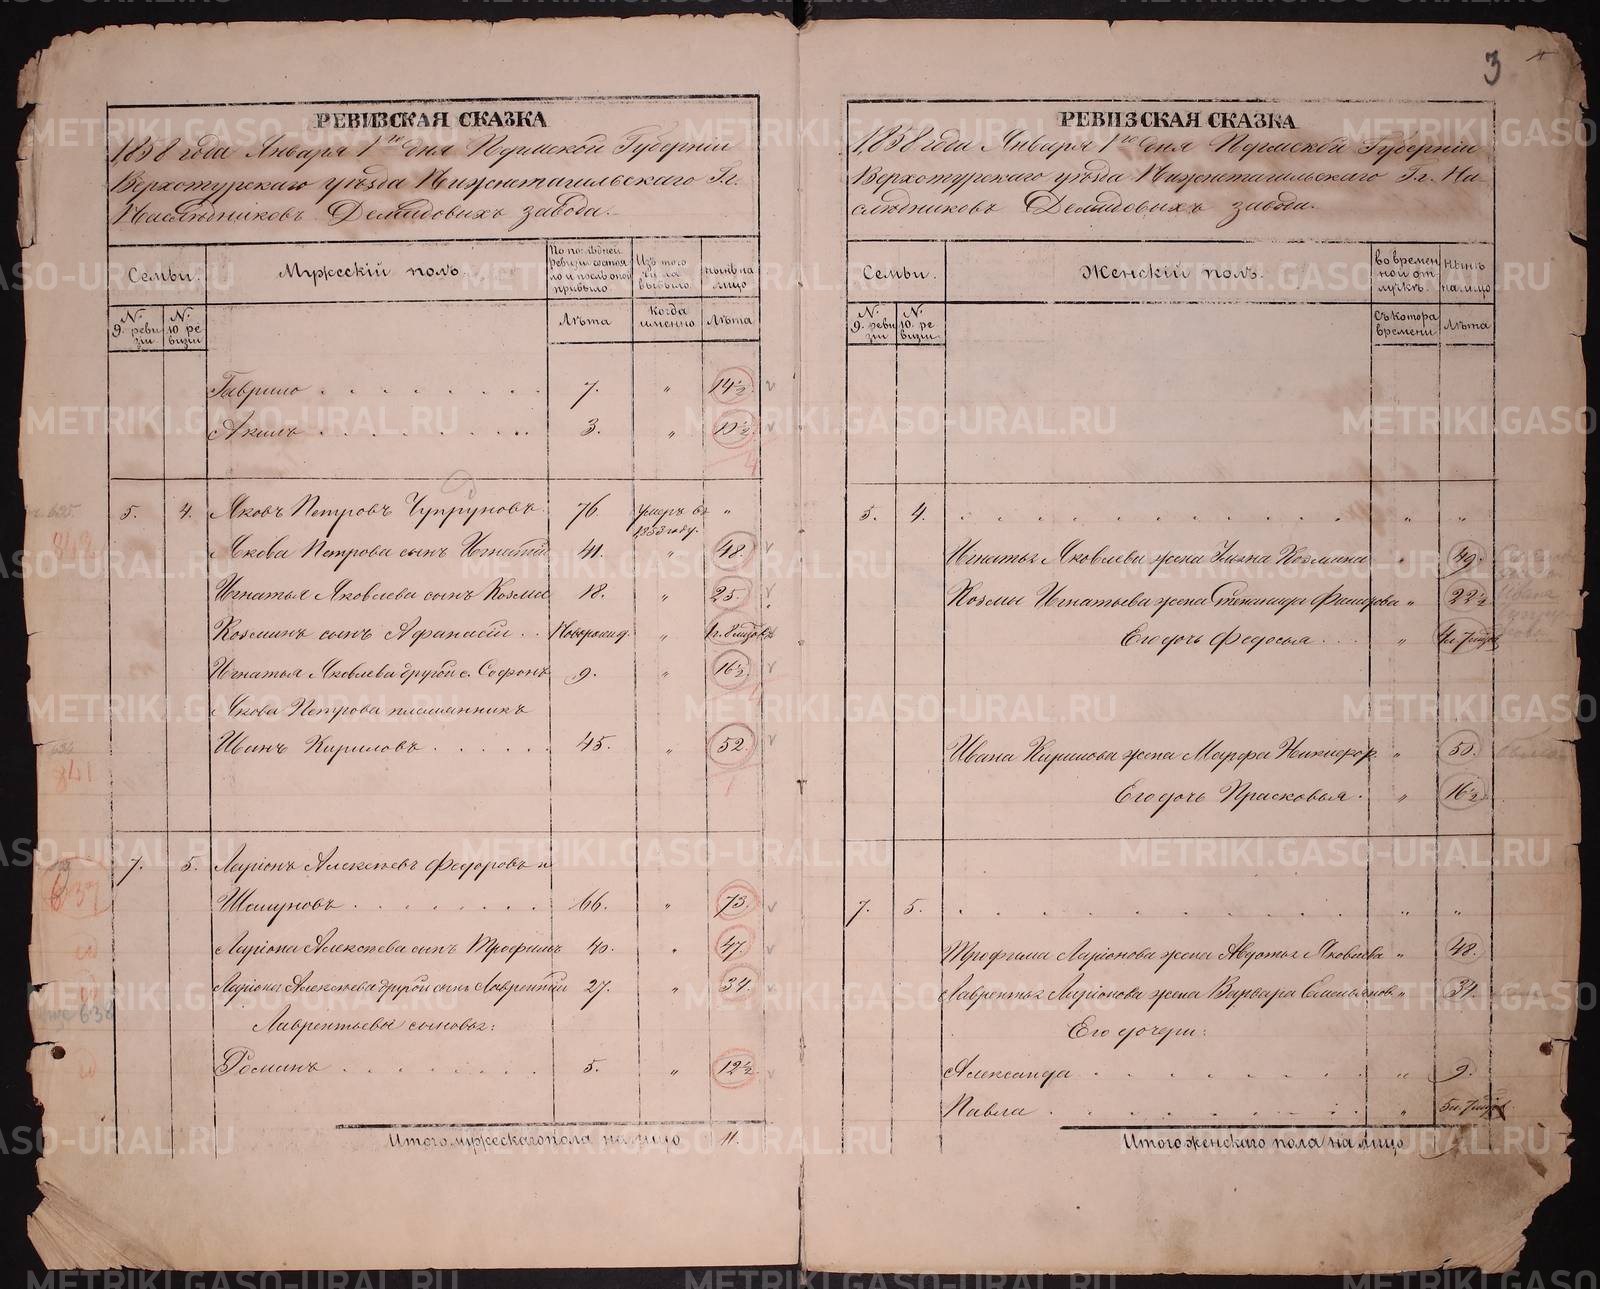 3
РЕВИЗСКАЯ СКАЗКА
1858 года Января 1го дня Пермской Губернiи
Верхотурскаго уѣзда Нижнетагильскаго Гг.
Наслѣдниковъ Демидовыхъ завода.
Семьи. Мужескiй полъ. По послѣдней ревизiи состояло и послѣ оной прибыло. Изъ того числа выбыло. Нынѣ на лицо
№ 9. ревизiи № 10 ревизiи Лѣта Когда именно Лѣта
Гаврило 7. " 14½
Акимъ 3. " 10½
5. 4. Яковъ Петровъ Чупруновъ 76. умеръ въ 1853 году. "
Якова Петрова сынъ Игнатiй 41. " 48.
Игнатья Яковлева сынъ Козма 18. " 25.
Козминъ сынъ Афанасiй Новорожд. " 1 г. 8 мцовъ
Игнатья Яковлева другой с. Софонъ 9. " 16½
Якова Петрова племянникъ
Иванъ Кириловъ 45. " 52.
7. 5. Ларiонъ Алексѣевъ Федоровъ и
Шалуновъ 66. " 73.
Ларiона Алексѣева сынъ Трофимъ 40. " 47.
Ларiона Алексѣева другой сынъ Лаврентiй 27. " 34.
Лаврентьевы сыновья:
Романъ 5. " 12½
Итого мужескаго пола на лицо 11.
РЕВИЗСКАЯ СКАЗКА
1858 года Января 1го дня Пермской Губернiи
Верхотурскаго уѣзда Нижнетагильскаго Гг. На-
слѣдниковъ Демидовыхъ завода.
Семьи. Женскiй полъ. во временной отлучкѣ. Нынѣ на лицо
№ 9. ревизiи № 10. ревизiи Съ котора времени Лѣта
5. 4. " "
Игнатья Яковлева жена Ульяна Козмина " 49.
Козмы Игнатьева жена Степанида Филипова " 22½
Его дочь Федосья " 4 л. 7 мцов
Ивана Кирилова жена Марфа Никифор. " 50.
Его дочь Прасковья " 16½
7. 5. " "
Трофима Ларiонова жена Авдотья Яковлева " 48.
Лаврентья Ларiонова жена Варвара Емельянов. " 34.
Его дочери:
Александра " 9.
Павла " 5 л. 7 мцов
Итого женскаго пола на лицо 9.
METRIKI.GASO-URAL.RU